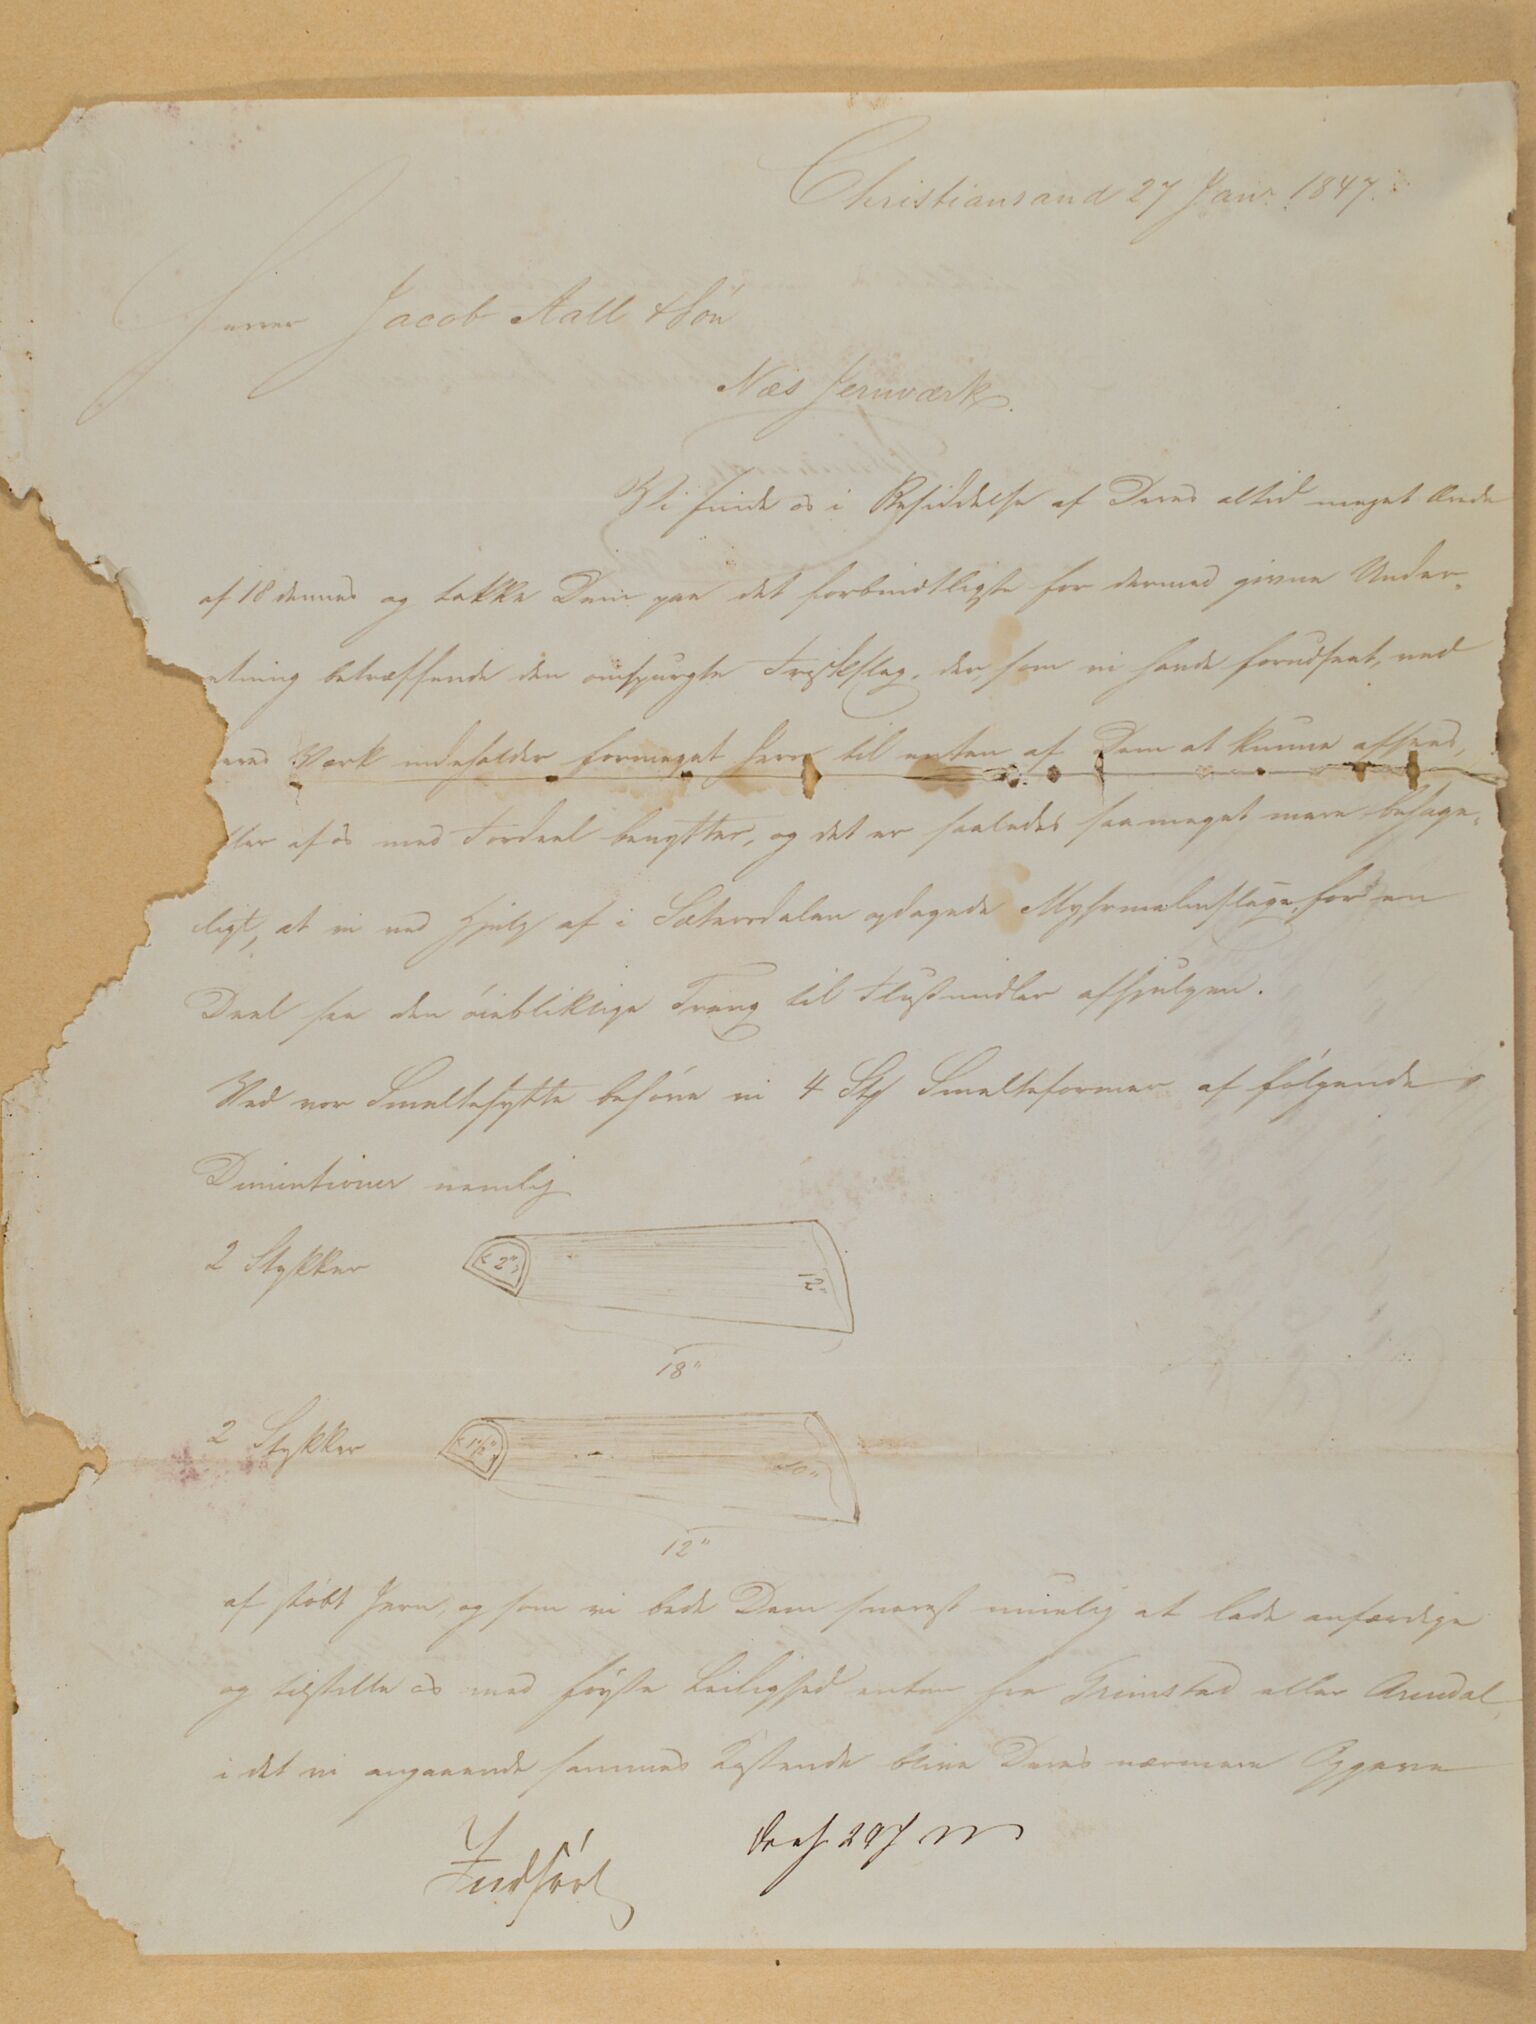 Christiansand 27 Janr. 1847.
Herrer Jacob Aall & Søn
Næs Jernværk.
Vi finde os i Besiddelse af Deres altid meget Ærede
af 18 dennes og takke Dem paa det forbindtligste for dermed givne Under-
retning betræffende den omspurgte Friskslag, der, som vi havde forudseet, ved
eres Værk indeholder formeget Jern til enten af Dem at kunne afsees,
ller af os med Fordeel benyttes, og det er saaledes saameget mere behage-
ligt, at vi ved Hjelp af i Sætersdalen opdagede Myhrmalmslage, for en
Deel faa den öiebliklige Trang til Flusmidler afhjulpen.
Ved vor Smeltehytte behöve vi 4 Stk Smelteformer af følgende
Dimentioner nemlig
2 Stykker
2"
12"
18"
2 Stykker
1 1/2"
10"
12"
af støbt Jern, og som vi bede Dem snarest muelig at lade anfærdige
og tilstille os med første Leilighed enten fra Grimstad eller Arendal,
i det vi angaaende sammes Kostende blive Deres nærmere Opgave
Indført